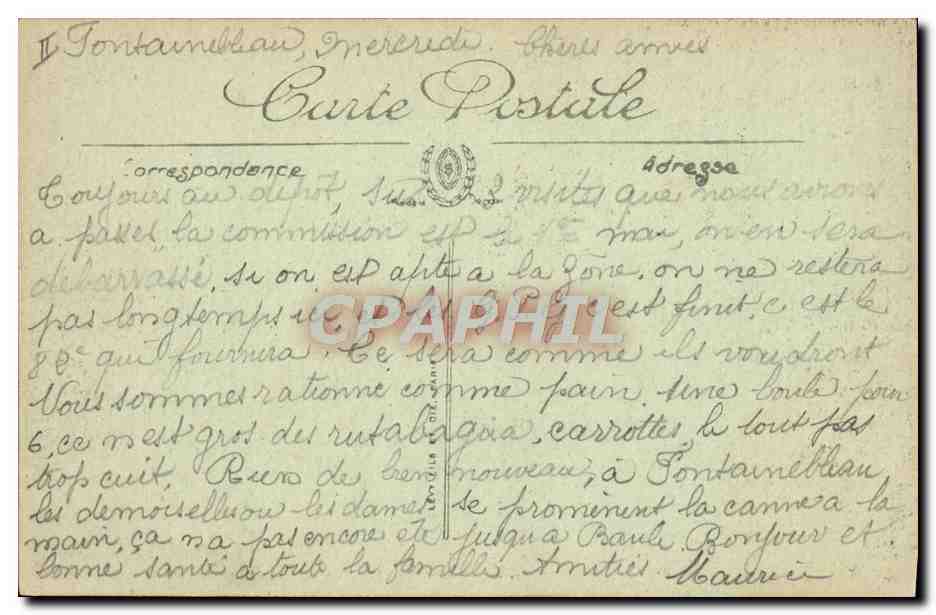 II Fontainebleau, Mercredi. Chères amies
Carte Postale
Correspondance
Adresse
Toujours au dépôt, sur 2 visites que nous avons
a passer, la commission est le 15 mai, on en sera
debarrassé, si on est apte a la zone, on ne restera
pas longtemps ici, c'est finit, c est le
82e qui fournira. Ce sera comme ils voudront
Nous sommes rationné comme pain une boule pour
6, ce n'est gros des rutabaga, carrottes, le tout pas
trop cuit. Rien de bien nouveau, à Fontainebleau
les demoiselles ou les dames se prominent la canne a la
main, ça n a pas encore été jusqu a Baule. Bonjour et
bonne santé a toute la famille. Amitiés Maurice
CPAPHIL